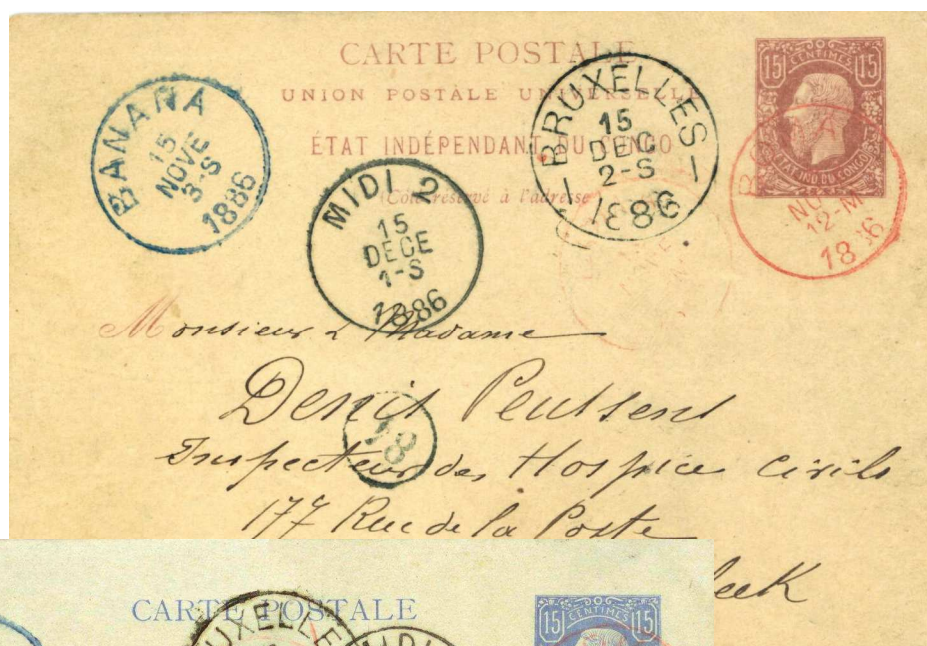 CARTE POSTALE
UNION POSTALE UNIVERSELLE
ÉTAT INDÉPENDANT DU CONGO
(Côté réservé à l'adresse)
15 CENTIMES 15
ETAT IND DU CONGO
BANANA
15
NOVE
3-S
1886
MIDI 2
15
DECE
1-S
1886
BRUXELLES
15
DEC
2-S
1886
12-M
18 6
Monsieur & Madame
Denis
48
Inspecteur des Hospice Civils
177 Rue de la Poste
CARTE POSTALE
15 CENTIMES 15
UXELLE
MIDI